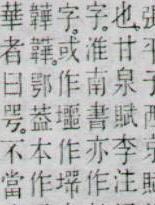 張平子
也。甘泉賦李注
字。淮南書亦作
字。或作作作
韡韡。鄂葢本作
華者曰咢。不當